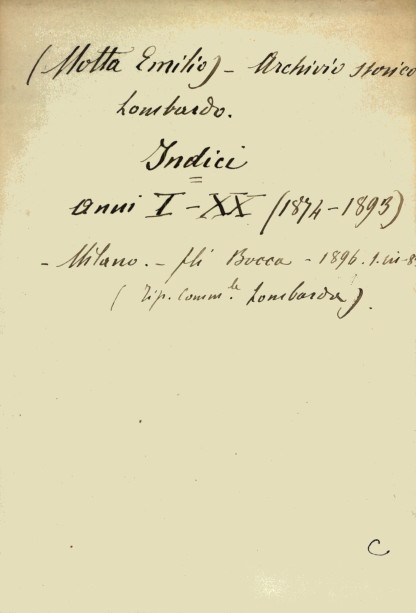 (Motta Emilio) - Archivio storico
Lombardo.
Indici
Anni I - XX (1874-1893)
- Milano. - fli Bocca - 1896. 1. in-8
(Tip. Comm.le Lombarda).
C